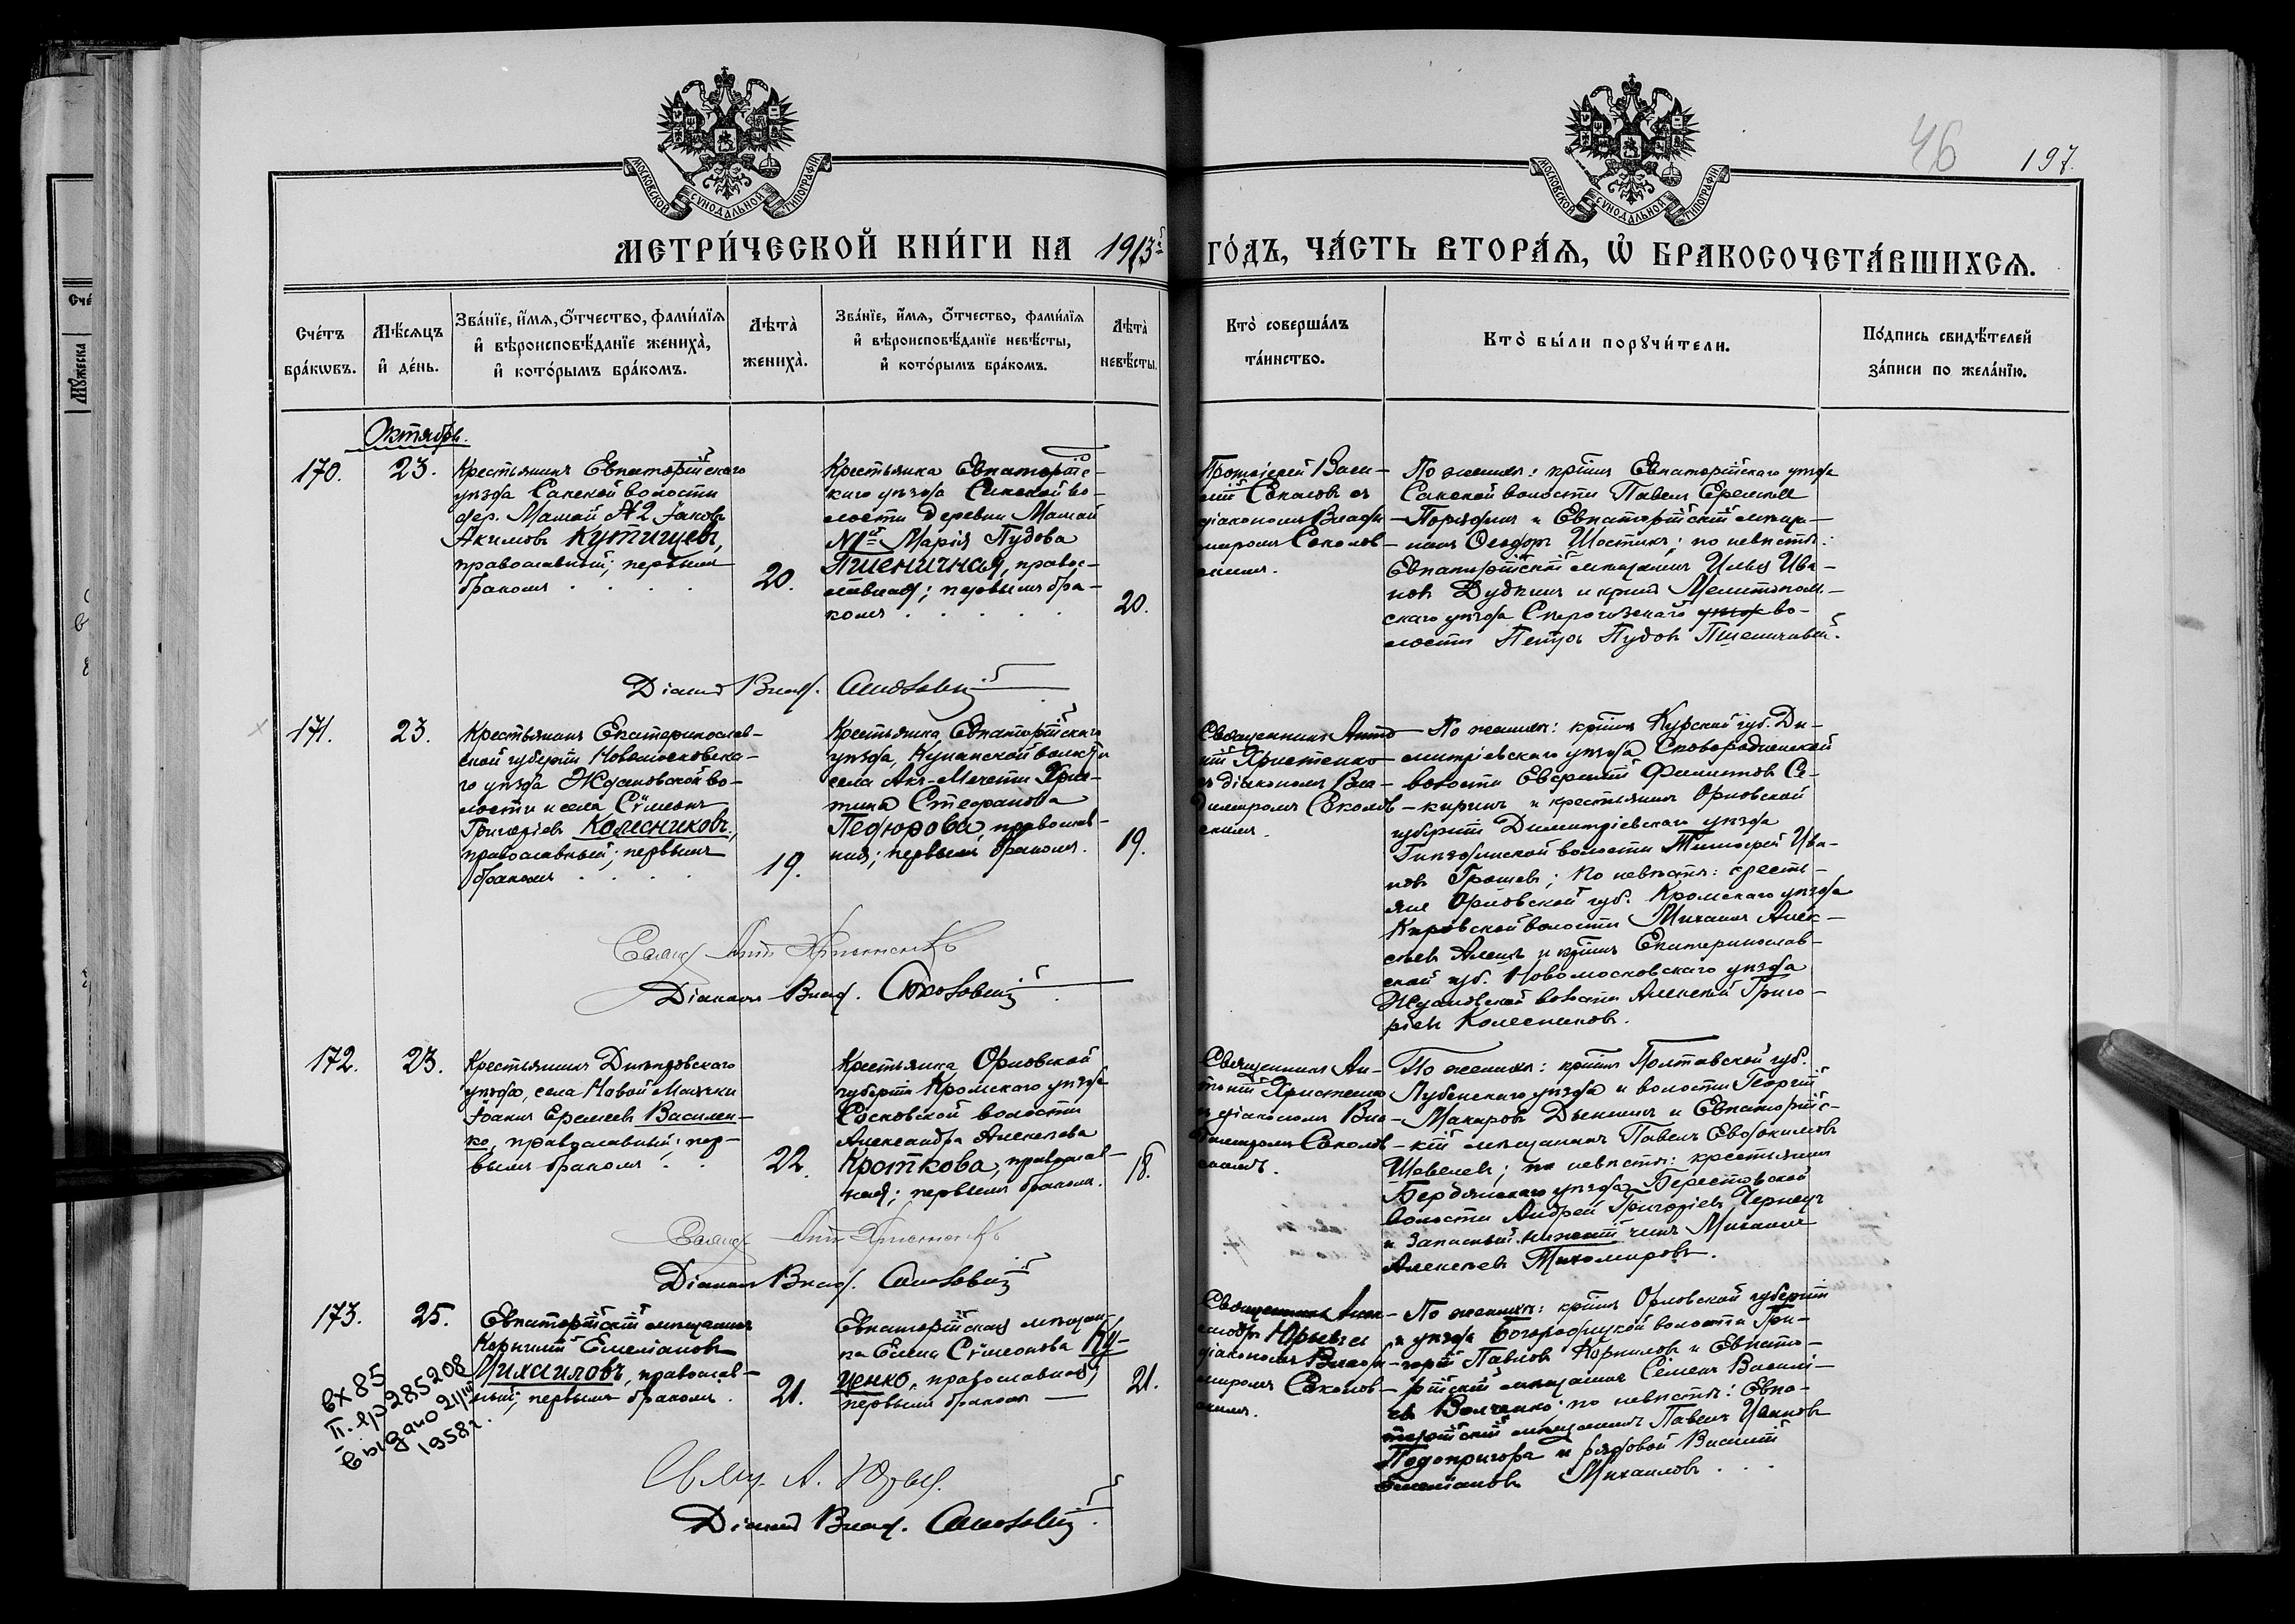 МОСКОВСКОЙ СѴНОДАЛЬНОЙ ТИПОГРАФІИ
МОСКОВСКОЙ СѴНОДАЛЬНОЙ ТИПОГРАФІИ
46
197.
МЕТРИ́ЧЕСКОЙ КНИ́ГИ НА 1913й
ГО́ДЪ, ЧА́СТЬ ВТОРА́Ѧ, Ѽ БРАКОСОЧЕТА́ВШИХСѦ.
Сче́тъ
бра́кѡвъ.
Мѣ́сяцъ
и҆ де́нь.
Зва́нїе, и҆́мѧ, ѻ҆́тчество, фами́лїѧ
и҆ вѣроисповѣ́данїе жениха̀,
и҆ кото́рымъ бра́комъ.
Лѣта̀
жениха̀.
Зва́нїе, и҆́мѧ, ѻ҆́тчество, фами́лїѧ
и҆ вѣроисповѣ́данїе невѣ́сты,
и҆ кото́рымъ бра́комъ.
Лѣта̀
невѣ́сты.
Кто̀ соверша́лъ
та́инство.
Кто̀ бы́ли порꙋчи́тели.
По́дпись свидѣ́телей
за́писи по жела́нїю.
Октябрь.
170.
23.
Крестьянинъ Евпаторійскаго
уѣзда Сакской волости
дер. Мамай №2 Іаковъ
Акимовъ Кутищевъ,
православный; первымъ
бракомъ . . . .
20.
Крестьянка Евпаторійс-
каго уѣзда Сакской во-
лости деревни Мамай
№1й Марія Пудова
Пшеничная, правос-
лавная; первымъ бра-
комъ . . . . .
20.
Протоіерей Васи-
лій Соколовъ съ
діакономъ Влади-
миромъ Соколов-
скимъ.
По женихѣ: кр-инъ Евпаторійскаго уѣзда
Сакской волости Павелъ
и Евпаторійскій мѣща-
нинъ Ѳеодоръ Шостикъ; по невѣстѣ:
Евпаторійскій мѣщанинъ Илья Ива-
новъ Дудкинъ и кр-инъ Мелитополь-
скаго уѣзда во-
лости Петръ Пудовъ Пшеничный.
Діаконъ Влад. Соколовскій
171.
23.
Крестьянинъ Екатеринослав-
ской губерніи Новомосковска-
го уѣзда Ждановской во-
лости и села Сѵмеонъ
Григоріевъ Колесниковъ,
православный; первымъ
бракомъ . . . .
19.
Крестьянка Евпаторійскаго
уѣзда, Кунанской волости
села Акъ-Мечети Хрис-
тина Стефанова
Педюрова, православ-
ная; первымъ бракомъ.
19.
Священникъ Анто-
ній Христенко
съ діакономъ Вла-
димиромъ Соколов-
скимъ.
По женихѣ: кр-инъ Курской губ. Ди-
митріевскаго уѣзда
волости Евфимій Филиповъ Се-
киринъ и крестьянинъ Орловской
губерніи Димитріевскаго уѣзда
волости Тимофей Ива-
новъ Грошевъ; по невѣстѣ: кресть-
яне Орловской губ. Кромскаго уѣзда
Кировской волости Михаилъ Алек-
сѣевъ и кр-инъ Екатеринослав-
ской губ. Новомосковскаго уѣзда
Ждановской волости Алексѣй Григо-
ріевъ Колесниковъ.
Свящ. Ант. Христенко
Діаконъ Влад. Соколовскій
172.
23.
Крестьянинъ Днѣпровскаго
уѣзда, села Новой Маячки
Іоаннъ Еремеевъ Василен-
ко, православный; пер-
вымъ бракомъ . .
22.
Крестьянка Орловской
губерніи Кромскаго уѣзда
Сосковской волости
Александра Алексѣева
Кроткова, православ-
ная; первымъ бракомъ.
18.
Священникъ Ан-
тоній Христенко
съ діакономъ Вла-
димиромъ Соколов-
скимъ.
По женихѣ: кр-инъ Полтавской губ.
Лубенскаго уѣзда и волости Георгій
Макаровъ и Евпаторійс-
кій мѣщанинъ Павелъ Евдокимовъ
Шевелевъ; по невѣстѣ: крестьянинъ
Бердянскаго уѣзда Берестовской
волости Андрей Григоріевъ Чернецъ
и запасный нижній чинъ Михаилъ
Алексѣевъ Тихомировъ.
Свящ. Ант. Христенко
Діаконъ Влад. Соколовскій
173.
25.
Евпаторійскій мѣщанинъ
Корнилій Емеліановъ
Михаиловъ, православ-
ный; первымъ бракомъ.
21.
Евпаторійская мѣщан-
ка Елена Сѵмеонова Ку-
ценко, православная;
первымъ бракомъ —
21.
Священникъ
Юрьевъ съ
діакономъ Влади-
миромъ Соколов-
скимъ.
По женихѣ: кр-инъ Орловской губерніи
и уѣзда Богородицкой волости Гри-
горій Павловъ Корниловъ и Евпато-
рійскій мѣщанинъ Симеонъ Василі-
евъ Волченко; по невѣстѣ: Евпа-
торійскій мѣщанинъ Павелъ Ивановъ
Подопригора и рядовой Василій
Емеліановъ Михаиловъ . . .
вх 85
П. вр 285208
выдано 21/III
1958г.
Свящ. А. Юрьев.
Діаконъ Влад. Соколовскій